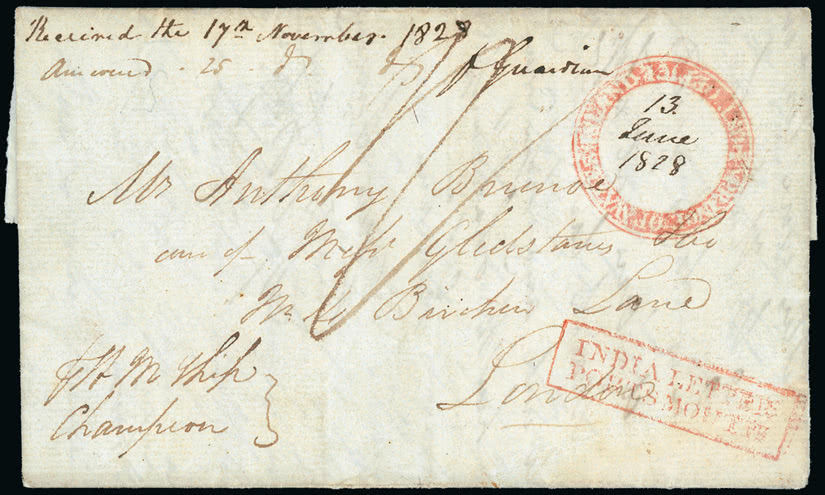 Received the 17th November 1828
Answered 25 do do p Guardian
13
June
1828
Mr Anthony Brunoe
care of Messrs Gledstanes &
No 4 Birchin Lane
London
p H M Ship
Champion
INDIA LETTER
PORTSMOUTH